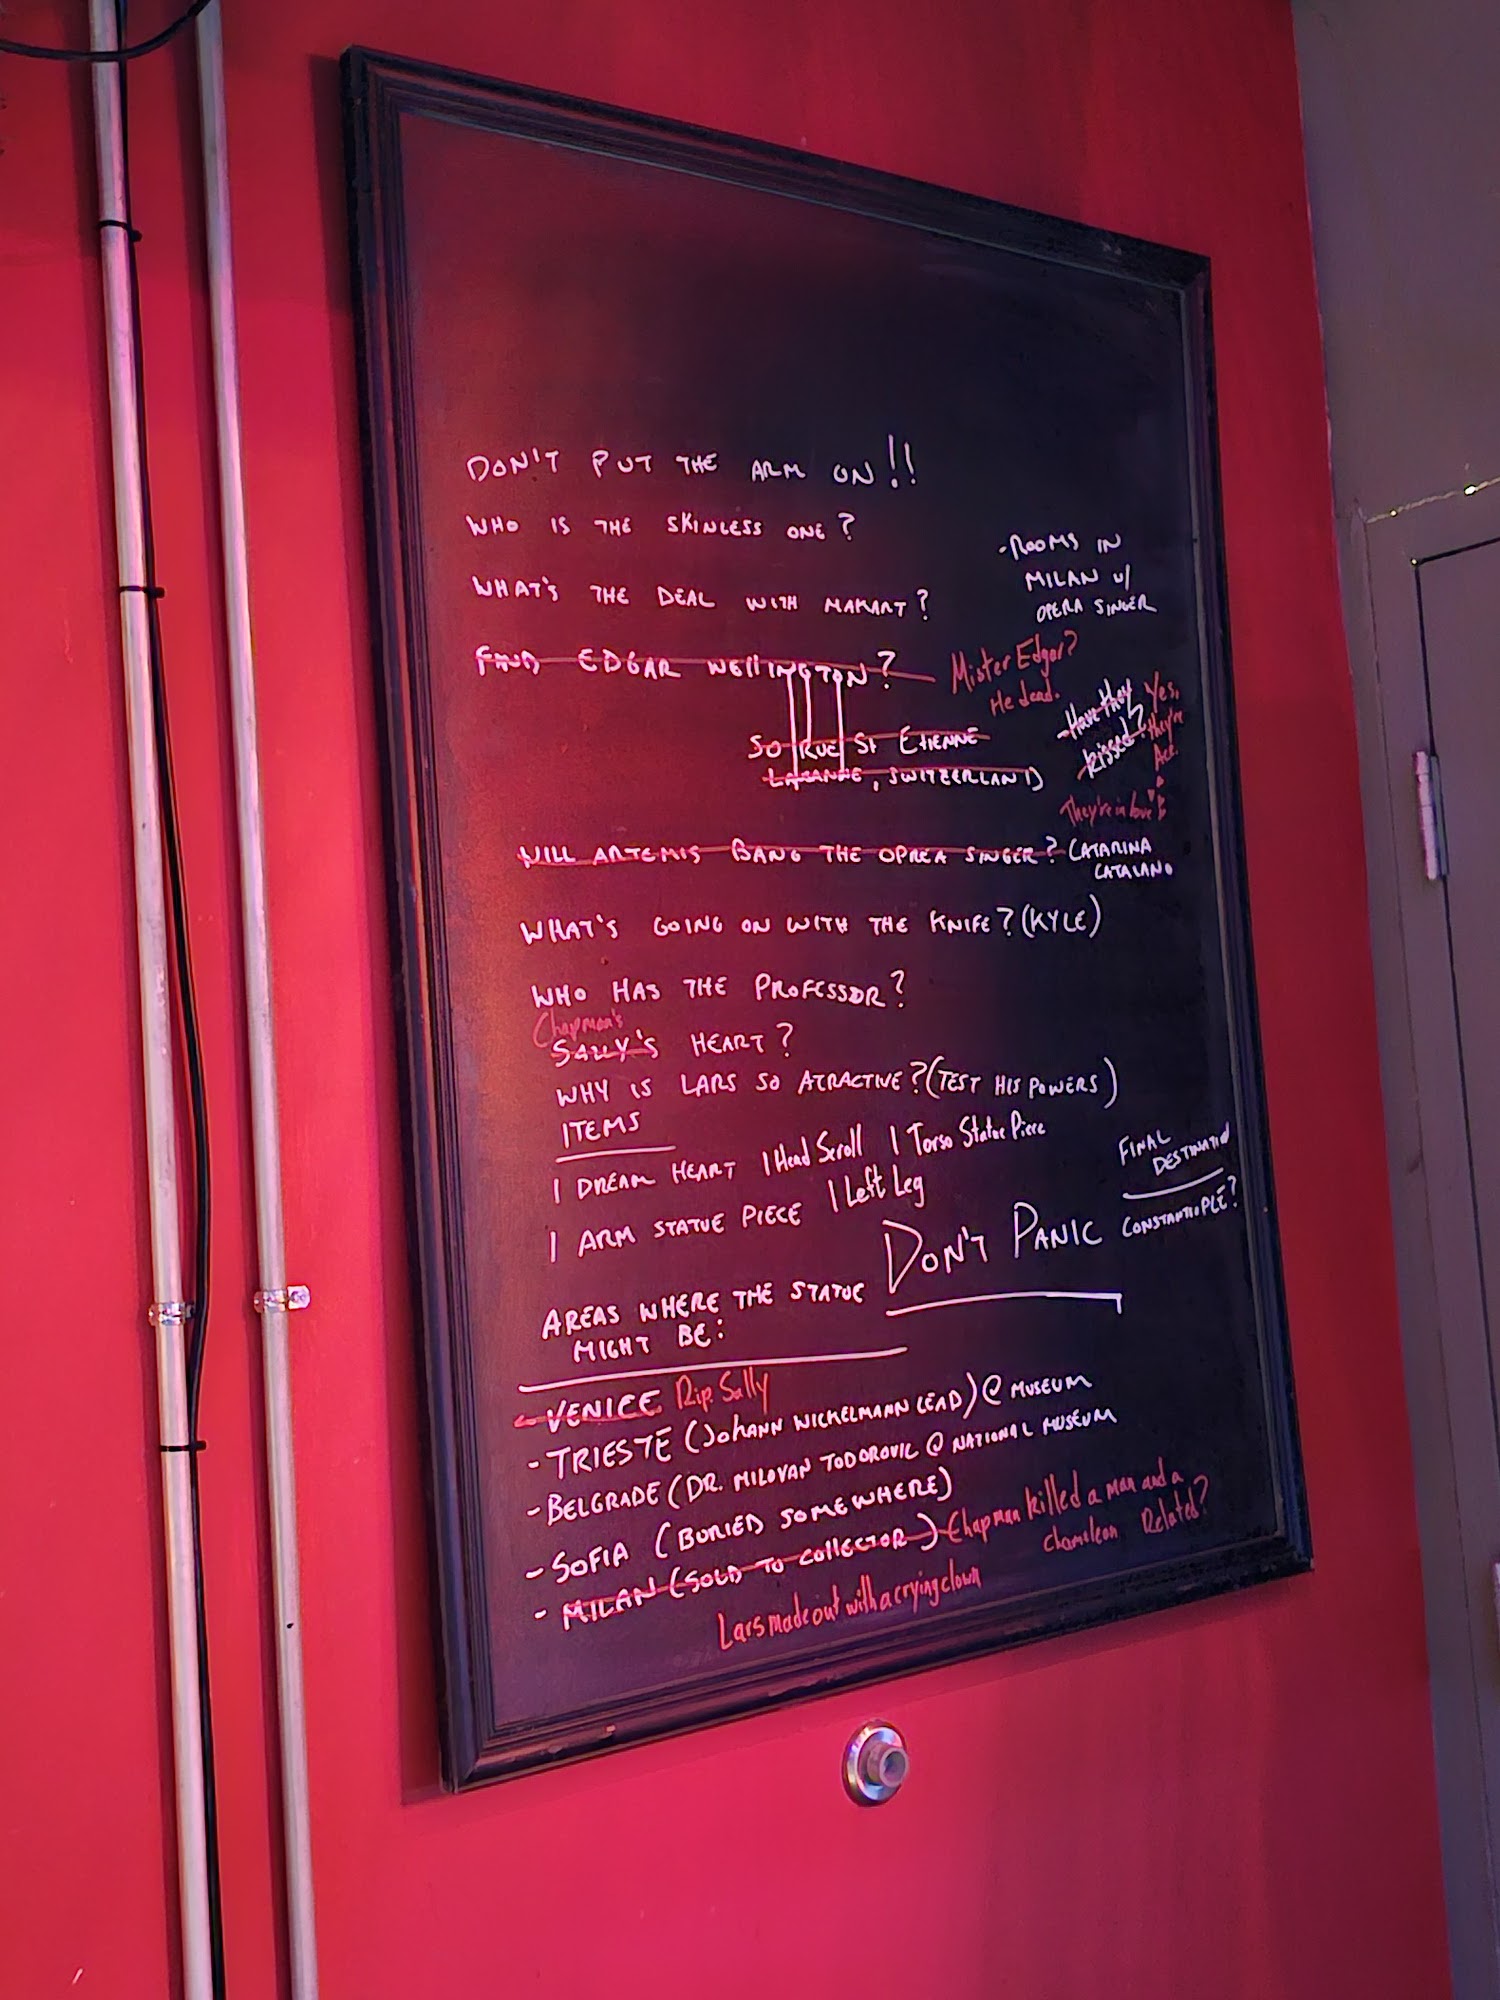 DON'T PUT THE ARM ON!!
WHO IS THE SKINLESS ONE?
WHAT'S THE DEAL WITH MAKART?
-ROOMS IN
MILAN W/
OPERA SINGER
FIND EDGAR WEllINGTON?
Mister Edgar?
He dead.
50 RUE St ETIENNE
LASANNE, SWITZERLAND
-Have they
kissed?
Yes,
they're
They're in love
WILL ARTEMIS BANG THE OPREA SINGER? CATARINA
CATALANO
WHAT'S GOING ON WITH THE KNIFE? (KYLE)
WHO HAS THE PROFESSOR?
Chapman's
SALLY'S HEART?
WHY IS LARS SO ATRACTIVE? (TEST HIS POWERS)
ITEMS
1 DREAM HEART 1 Head Scroll 1 Torso Statue Piece
1 ARM STATUE PIECE 1 Left Leg
FINAL
DESTINATIO
CONSTANTIOPLE?
DON'T PANIC
AREAS WHERE THE STATUE
MIGHT BE:
-VENICE Rip. Sally
-TRIESTE (JOhANN WICKELMANN LEAD) @ MUSEUM
-BELGRADE (DR. MILOVAN TODOROVIC @ NATIONAL MUSEUM
-SOFIA (BURIED SOMEWHERE)
-MILAN (SOLD TO COllECTOR) -Chapman killed a man and a
chameleon Related?
Lars made out with a crying clown